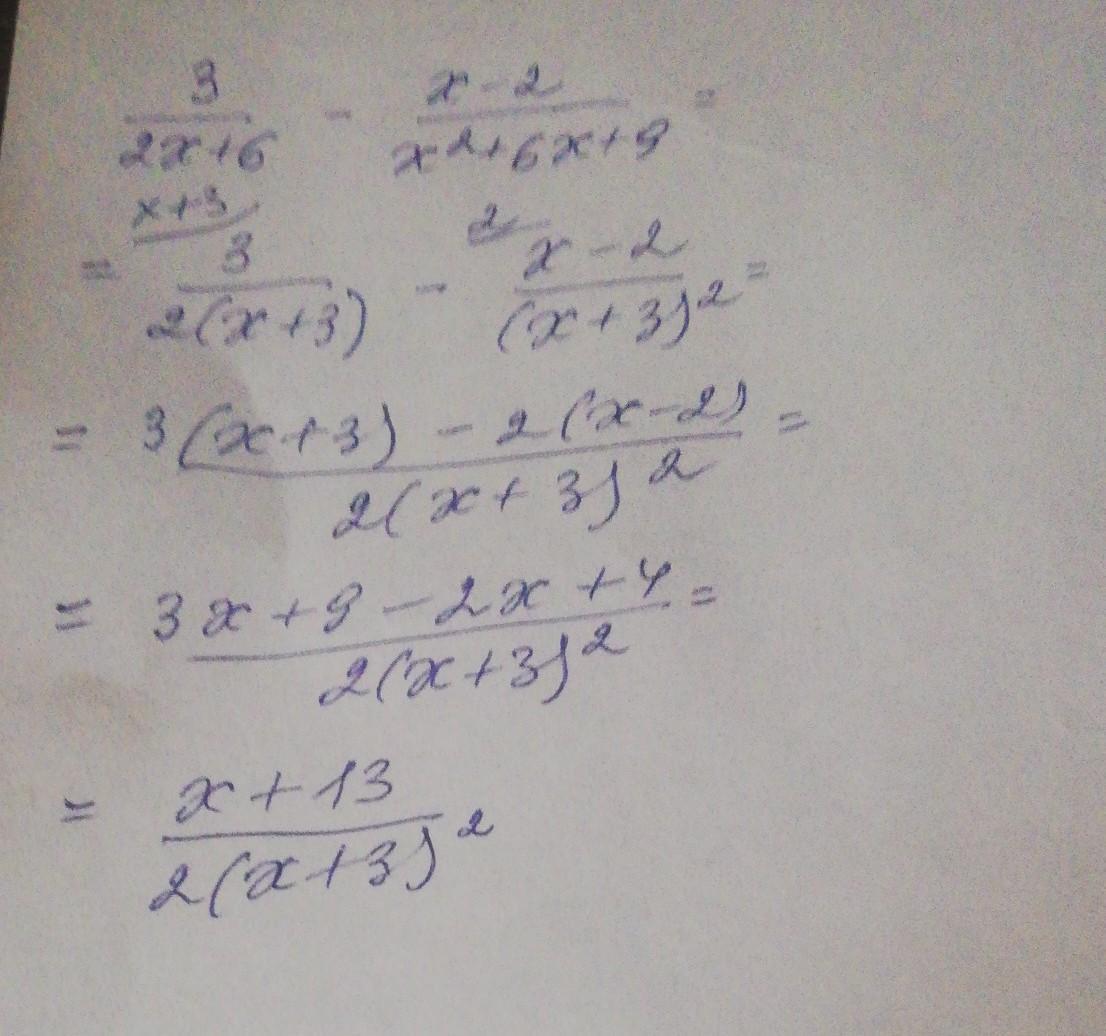 3/(2x+6) - (x-2)/(x²+6x+9) =
= x+3 3/(2(x+3)) - 2 (x-2)/(x+3)² =
= (3(x+3) - 2(x-2))/(2(x+3)²) =
= (3x+9-2x+4)/(2(x+3)²) =
= (x+13)/(2(x+3)²)